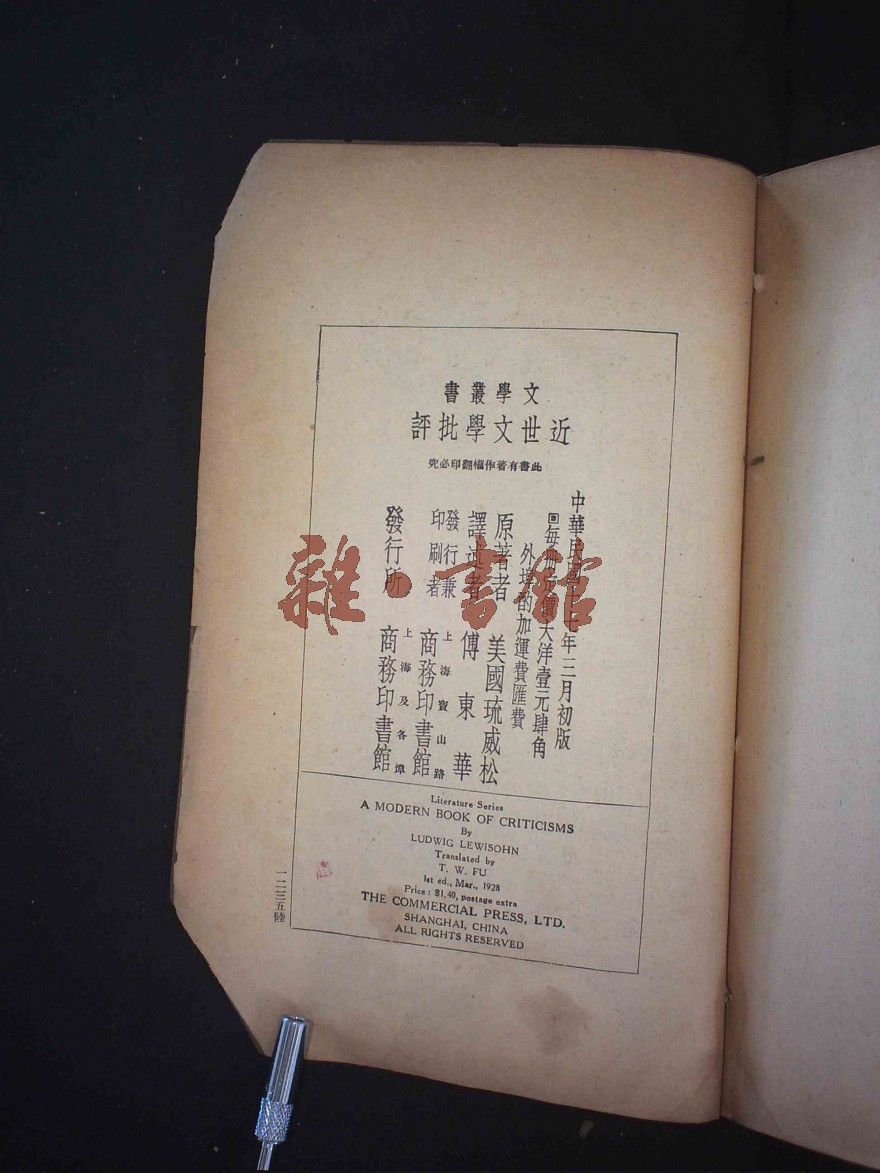 文學叢書
近世文學批評
此書有著作權翻印必究
中華民國十七年三月初版
每冊定價大洋壹元肆角
外埠酌加運費匯費
原著者 美國琉威松
譯述者 傅東華
發行兼印刷者 上海寶山路 商務印書館
發行所 上海及各埠 商務印書館
Literature Series
A MODERN BOOK OF CRITICISMS
By
LUDWIG LEWISOHN
Translated by
T. W. FU
1st ed., Mar., 1928
Price: $1.40, postage extra
THE COMMERCIAL PRESS, LTD.
SHANGHAI, CHINA
ALL RIGHTS RESERVED
一二三五陸
雜·書館